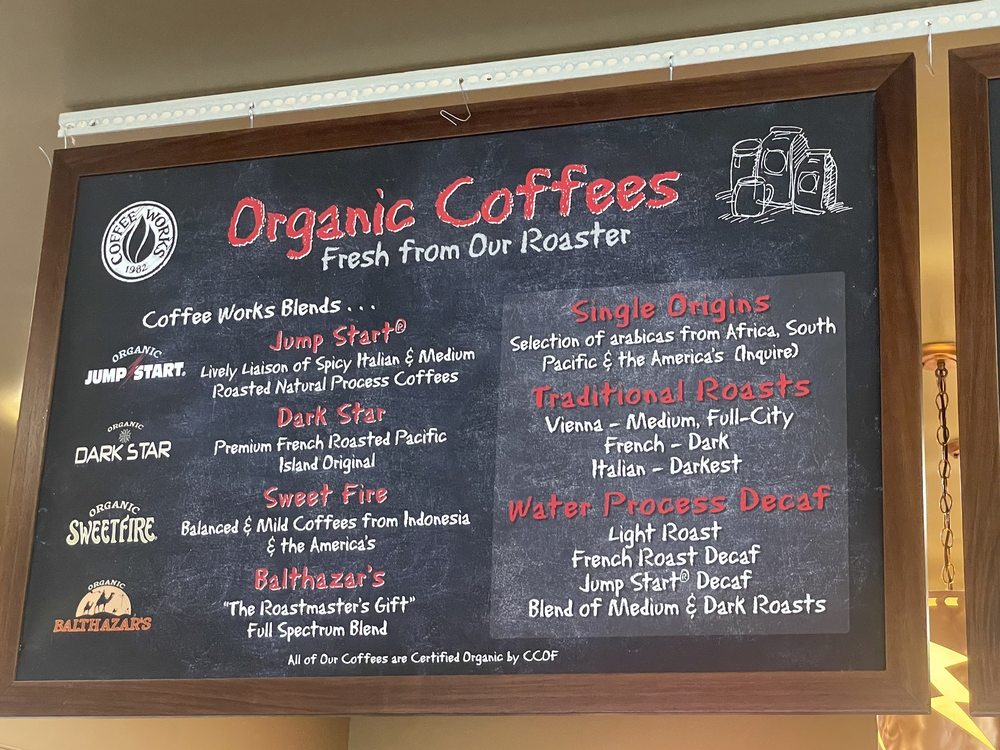 COFFEE WORKS
1982
Organic Coffees
Fresh from Our Roaster
Coffee Works Blends . . .
ORGANIC
JUMP START.
Jump Start®
Lively Liaison of Spicy Italian & Medium
Roasted Natural Process Coffees
ORGANIC
DARK STAR
Dark Star
Premium French Roasted Pacific
Island Original
ORGANIC
SWEETFIRE
Sweet Fire
Balanced & Mild Coffees from Indonesia
& the America's
ORGANIC
BALTHAZAR'S
Balthazar's
"The Roastmaster's Gift"
Full Spectrum Blend
Single Origins
Selection of arabicas from Africa, South
Pacific & the America's (Inquire)
Traditional Roasts
Vienna - Medium, Full-City
French - Dark
Italian - Darkest
Water Process Decaf
Light Roast
French Roast Decaf
Jump Start® Decaf
Blend of Medium & Dark Roasts
All of Our Coffees are Certified Organic by CCOF